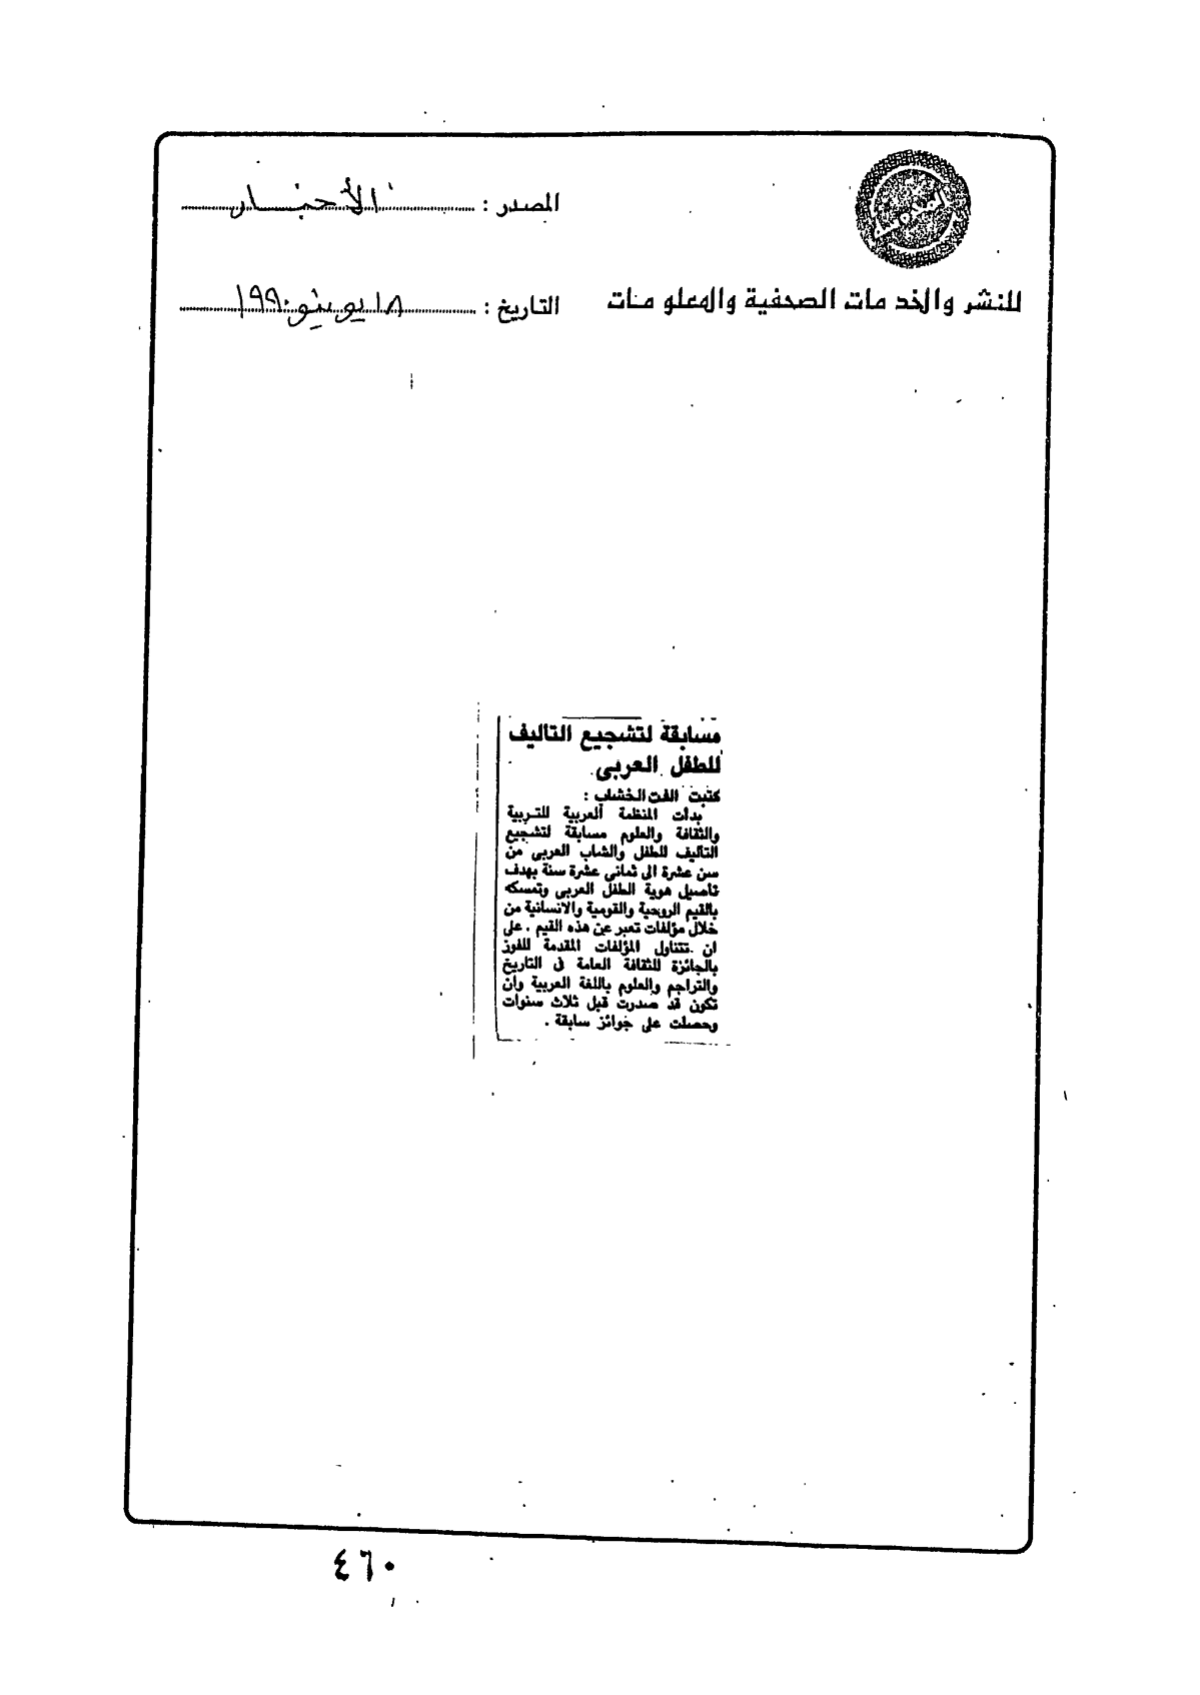 المصدر : الأخبار
للنشر والخدمات الصحفية والمعلومات
التاريخ : ١٨ يونيو ١٩٩٠
مسابقة لتشجيع التأليف
للطفل العربى
كتبت الفت الخشاب :
بدأت المنظمة العربية للتربية
والثقافة والعلوم مسابقة لتشجيع
التأليف للطفل والشاب العربى من
سن عشرة الى ثمانى عشرة سنة بهدف
تأصيل هوية الطفل العربى وتمسكه
بالقيم الروحية والقومية والانسانية من
خلال مؤلفات تعبر عن هذه القيم . على
ان تتناول المؤلفات المقدمة للفوز
بالجائزة للثقافة العامة فى التاريخ
والتراجم والعلوم باللغة العربية وأن
تكون قد صدرت قبل ثلاث سنوات
وحصلت على جوائز سابقة .
٤٦٠